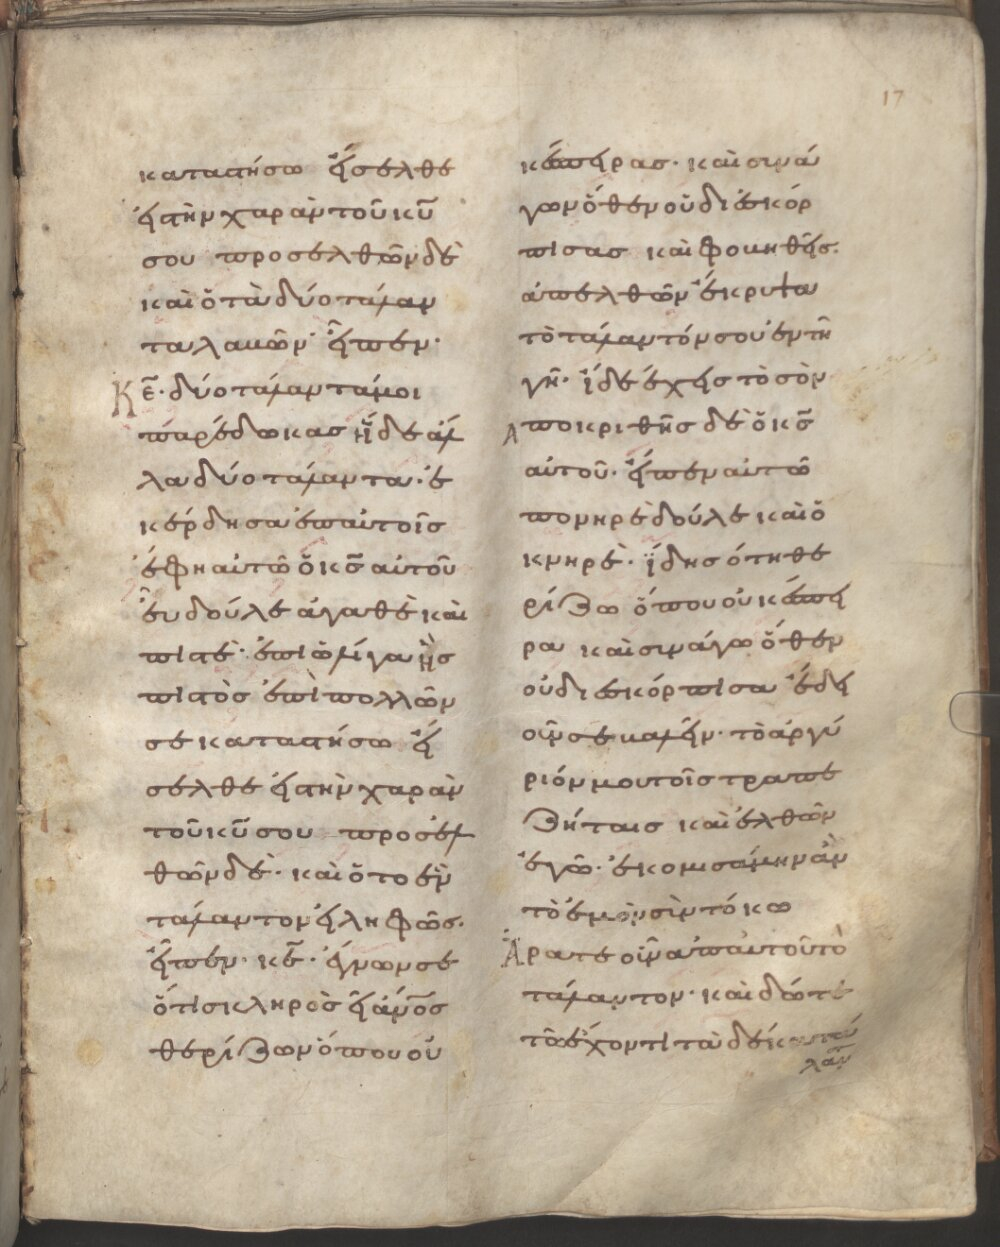 17
καταστήσω εἴσελθε
εἰς τὴν χαρὰν τοῦ κῡ
σου προσελθῶν δὲ
καὶ ὁ τὰ δύο τάλαν
τα λαβῶν εἶπεν·
Κε̄· δύο τάλαντά μοι
παρέδωκας ἤδε ἄλ
λα δύο τάλαντα· ἐ
κέρδησα ἐπ αὐτοῖς
ἔφη αὐτῶ ὁ κς̄ αὐτοῦ
εὖ δοῦλε ἀγαθὲ καὶ
πιστὲ· ἐπὶ ὀλίγα ἦς
πιστὸς ἐπὶ πολλῶν
σε καταστήσω εἴ
σελθε εἰς τὴν χαρὰν
τοῦ κῡ σου προσελ
θῶν δὲ· καὶ ὁ το ἐν
τάλαντον εἰληφῶς·
εἶπεν· κε̄· ἔγνων σε
ὅτι σκληρὸς εἶ ἀν̄ος
θερίζων ὅπου οὐ
κ ἔσπειρας· καὶ συνά
γων ὅθεν οὐ διεσκόρ
πισας καὶ φοβηθεὶς·
ἀπελθῶν ἔκρυψα
τὸ τάλαντόν σου ἐν τῆ
γῆ· ἴδε ἔχεις τὸ σὸν
Αποκριθῆς δὲ ὁ κς̄
αὐτοῦ· εἶπεν αὐτῶ
πονηρὲ δοῦλε καὶ ὀ
κνηρὲ· ἴδης ὅτη θε
ρίζω ὅπου οὐκ ἔσπει
ρα καὶ συνάγω ὅθεν
οὐ διεσκόρπισα ἔδει
οὖν σε βαλεῖν· τὸ ἀργύ
ριόν μου τοῖς τραπε
ζήταις καὶ ἐλθῶν
ἐγῶ· ἐκομισάμην ἀν
τὸ ἐμὸν σὺν τόκω
Ἄρατε οὖν ἀπ αὐτοῦ τὸ
τάλαντον· καὶ δώτε
τῶ ἔχοντι τὰ δέκα τά
λαν